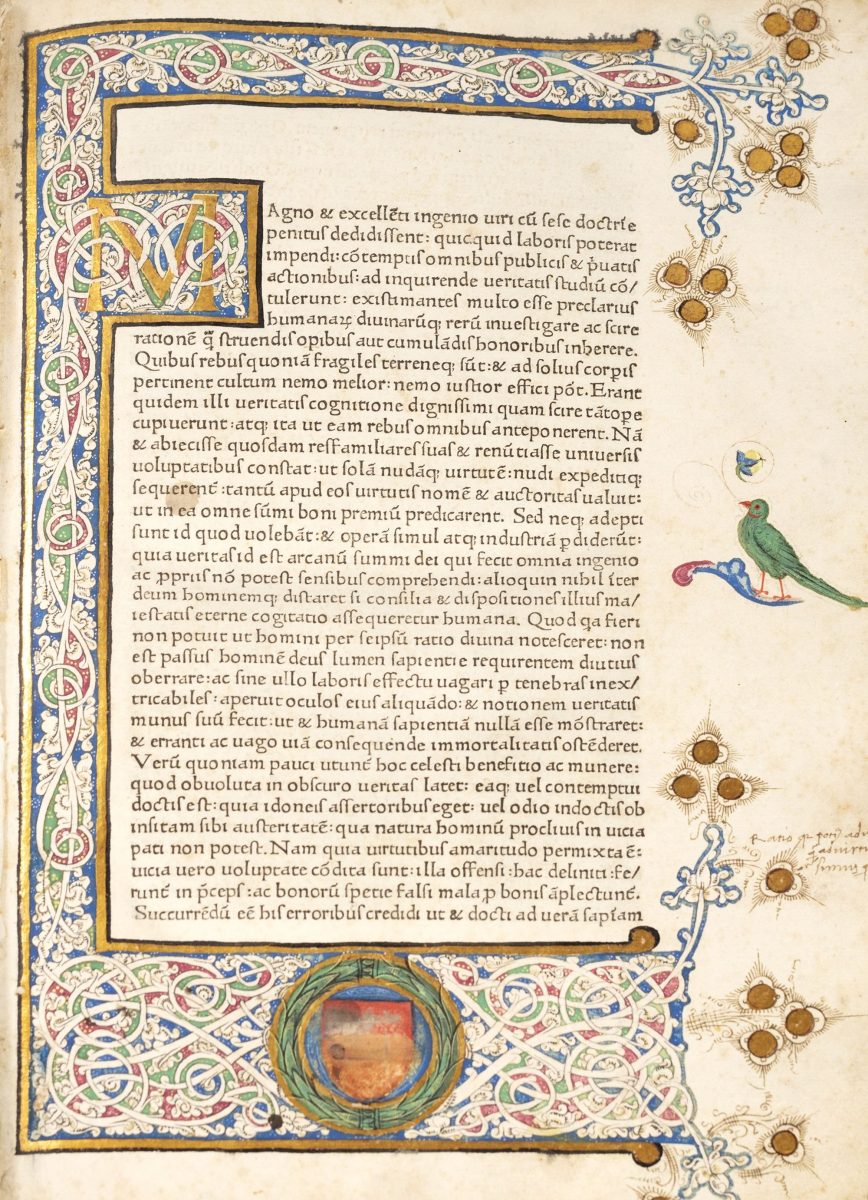 MAgno & excellēti ingenio uiri cū sese doctrīe
penitus dedidissent: quicquid laboris poterat
impendi: cōtemptis omnibus publicis & p̄uatis
actionibus: ad inquirende ueritatis studiū cō/
tulerunt: existimantes multo esse preclarius
humanaꝝ diuinarūq; rerū inuestigare ac scire
rationē q̄ struendis opibus aut cumulādis honoribus inherere.
Quibus rebus quoniā fragiles terreneq; sūt: & ad solius corꝑis
pertinent cultum nemo melior: nemo iustior effici pōt. Erant
quidem illi ueritatis cognitione dignissimi quam scire tātoꝑe
cupiuerunt: atq; ita ut eam rebus omnibus anteponerent. Nā
& abiecisse quosdam res familiares suas & renūtiasse uniuersis
uoluptatibus constat: ut solā nudāq; uirtutē: nudi expeditiq;
sequerent̄: tantū apud eos uirtutis nomē & auctoritas ualuit:
ut in ea omne sūmi boni premiū predicarent. Sed neq; adepti
sunt id quod uolebāt: & operā simul atq; industriā ꝑdiderūt:
quia ueritas id est arcanū summi dei qui fecit omnia ingenio
ac ꝓpriis nō potest sensibus comprehendi: alioquin nihil īter
deum hominemq; distaret si consilia & dispositiones illius ma/
iestatis eterne cogitatio assequeretur humana. Quod qa fieri
non potuit ut homini per seipsū ratio diuina notesceret: non
est passus hominē deus lumen sapientie requirentem diutius
oberrare: ac sine ullo laboris effectu uagari ꝑ tenebras inex/
tricabiles: aperuit oculos eius aliquādo: & notionem ueritatis
munus suū fecit: ut & humanā sapientiā nullā esse mōstraret:
& erranti ac uago uiā consequende immortalitatis ostēderet.
Verū quoniam pauci utunt̄ hoc celesti benefitio ac munere:
quod obuoluta in obscuro ueritas latet: eaq; uel contemptui
doctis est: quia idoneis assertoribus eget: uel odio indoctis ob
insitam sibi austeritatē: qua natura hominū procliuis in uicia
pati non potest. Nam quia uirtutibus amaritudo permixta ē:
uicia uero uoluptate cōdita sunt: illa offensi: hac deliniti: fe/
runt̄ in p̄ceps: ac bonorū spetie falsi mala ꝓ bonis āplectunt̄.
Succurrēdū eē his erroribus credidi ut & docti ad uerā sapīam